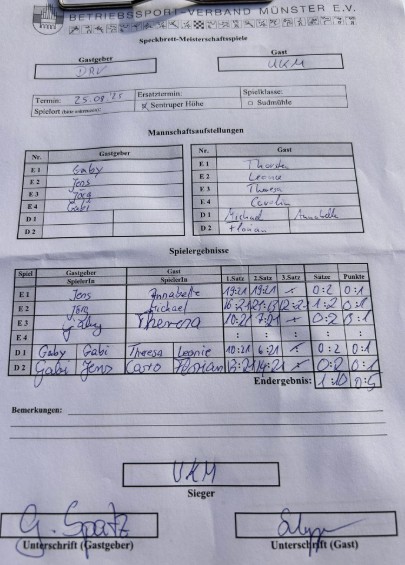 BETRIEBSSPORT-VERBAND MÜNSTER E.V.
Speckbrett-Meisterschaftsspiele
Gastgeber Gast
DRV UKM
Termin: 25.08.'25 Ersatztermin: Spielklasse:
Spielort Sentruper Höhe Sudmühle
Mannschaftsaufstellungen
Nr. Gastgeber Nr. Gast
E 1 Gaby E 1
E 2 Jens E 2 Leonie
E 3 Jörg E 3 Theresa
E 4 Gabi E 4
D 1 D 1 Michael Annabelle
D 2 D 2 Florian
Spielergebnisse
Spiel Gastgeber SpielerIn Gast SpielerIn 1.Satz 2.Satz 3.Satz Sätze Punkte
E 1 Jens Annabelle 19:21 19:21 0:2 0:1
E 2 Jörg Michael 16:21 1:2 0:1
E 3 Gaby Theresa 10:21 7:21 0:2 0:1
E 4 : : : : :
D 1 Gaby Gabi Theresa Leonie 10:21 6:21 0:2 0:1
D 2 Gabi Jens Caro Florian 14:21 0:2 0:1
Endergebnis: 1:10 0:5
Bemerkungen:
UKM
Sieger
G. Spatz
Unterschrift (Gastgeber) Unterschrift (Gast)